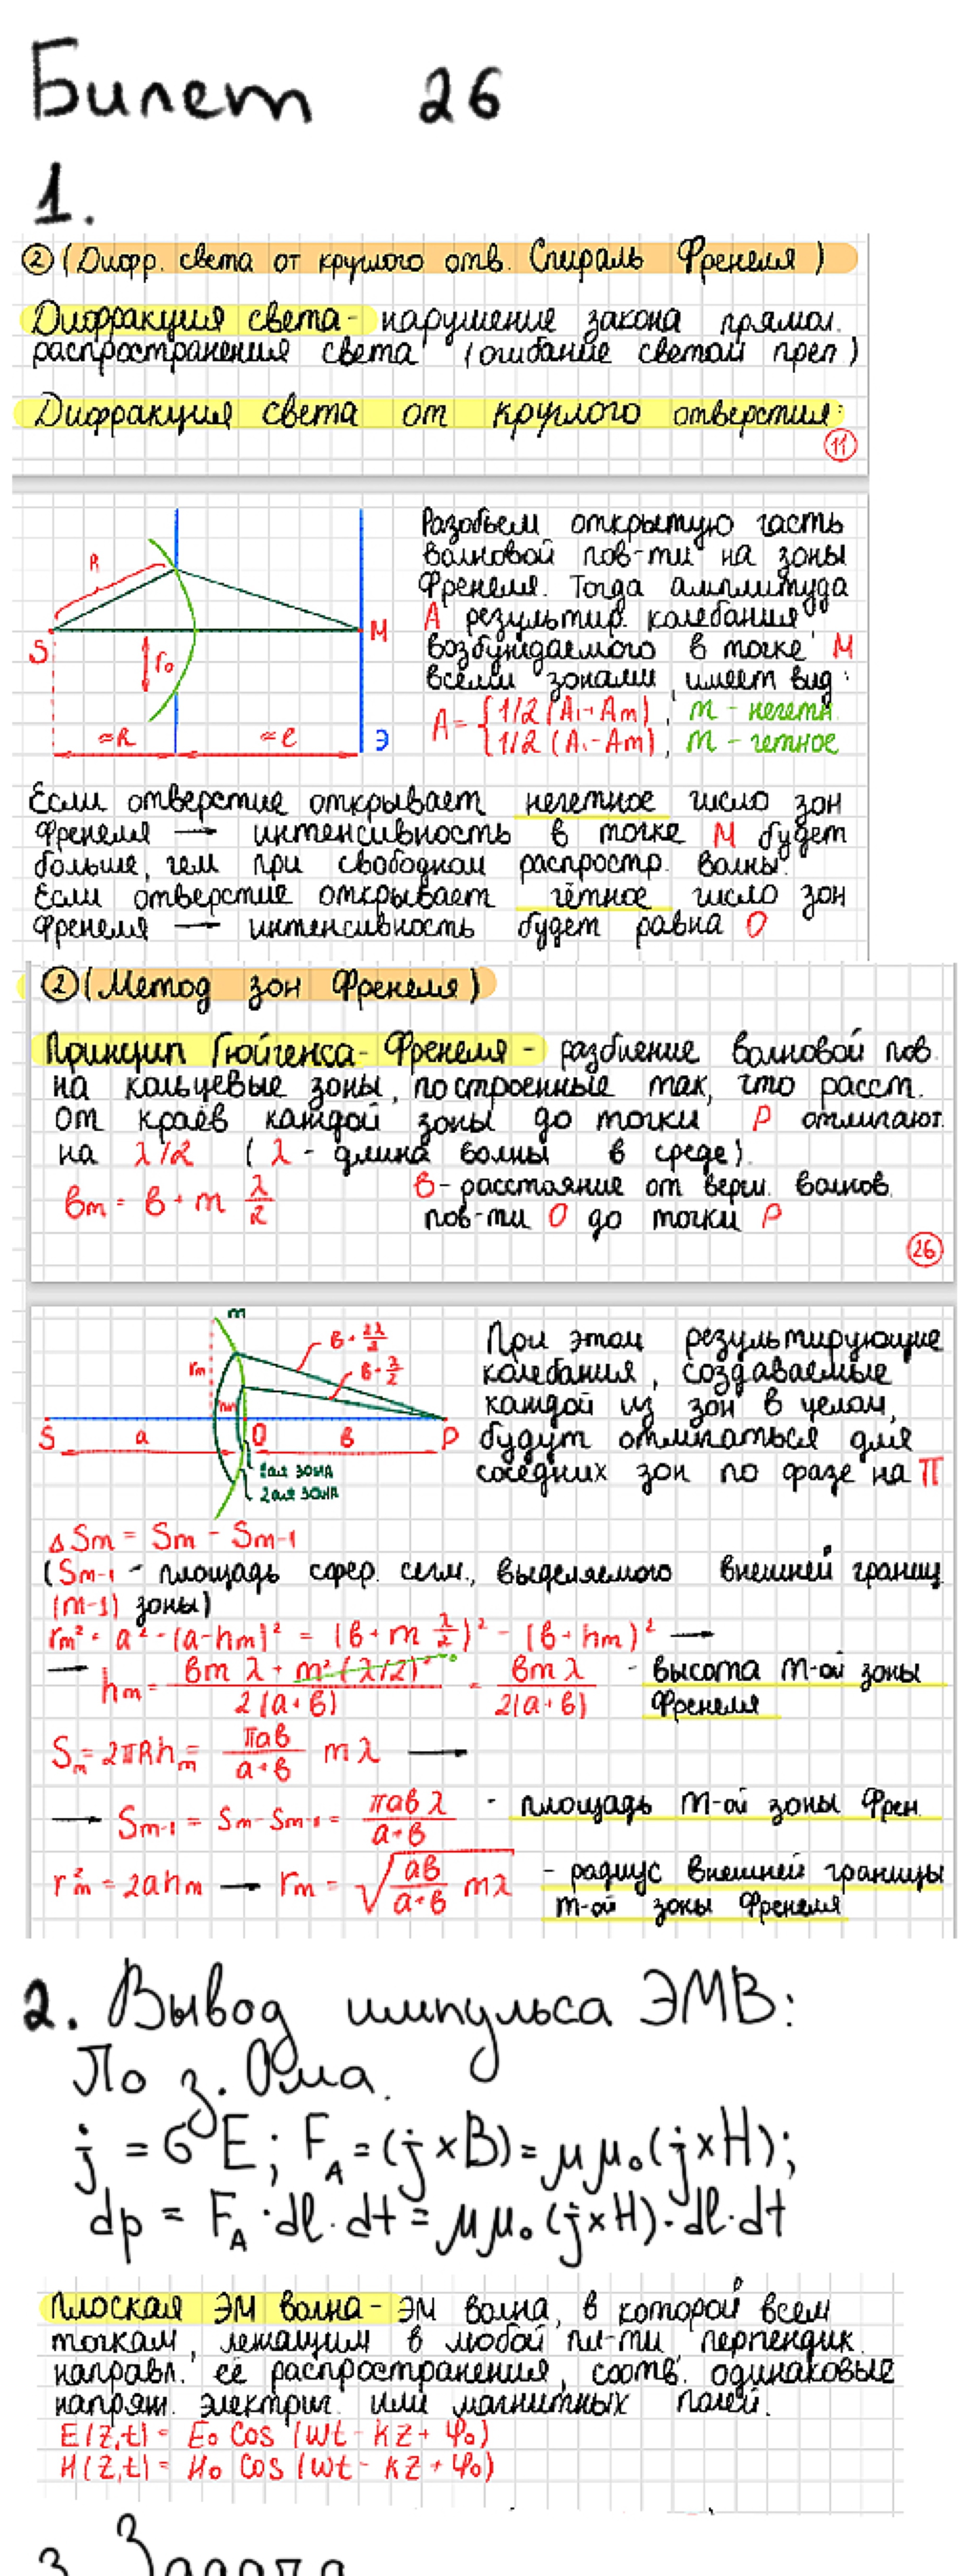 Билет 26
1.
② (Дифр. света от круглого отв. Спираль Френеля)
Дифракция света - нарушение закона прямол.
распространения света (огибание светом преп.)
Дифракция света от круглого отверстия:
11
Разобьем открытую часть
волновой пов-ти на зоны
Френеля. Тогда амплитуда
A результир. колебания
возбуждаемого в точке M
всеми зонами, имеет вид:
A = { 1/2 (A₁+Am), m - нечетн.
{ 1/2 (A₁-Am), m - четное
R
S
M
r₀
≈R
≈l
Э
Если отверстие открывает нечетное число зон
Френеля → интенсивность в точке M будет
больше, чем при свободном распростр. волны.
Если отверстие открывает чётное число зон
Френеля → интенсивность будет равна 0
② (Метод зон Френеля)
Принцип Гюйгенса-Френеля - разбиение волновой пов.
на кольцевые зоны, построенные так, что расст.
от краёв каждой зоны до точки P отличают.
на λ/2 (λ - длина волны в среде).
bm = b + m λ/2
b - расстояние от верш. волнов.
пов-ти O до точки P
26
m
b + 2λ/2
b + λ/2
rm
hm
S
a
O
b
P
1ая зона
2ая зона
При этом результирующие
колебания, создаваемые
каждой из зон в целом,
будут отличаться для
соседних зон по фазе на π
ΔSm = Sm - Sm-1
(Sm-1 - площадь сфер. сегм., выделяемого внешней границ.
(m-1) зоны)
rm² = a² - (a-hm)² = (b + m λ/2)² - (b + hm)² →
→ hm = (bm λ + m² (λ/2)²) / 2(a+b) = bmλ / 2(a+b) - высота m-ой зоны
Френеля
Sm = 2πRhm = πab/(a+b) mλ →
→ Sm-1 = Sm - Sm-1 = πabλ/(a+b) - площадь m-ой зоны Френ.
rm² = 2ahm → rm = √(ab/(a+b) mλ) - радиус внешней границы
m-ой зоны Френеля
2. Вывод импульса ЭМВ:
По з. Ома.
j = σE; F_A = (j×B) = μμ₀(j×H);
dp = F_A·dl·dt = μμ₀(j×H)·dl·dt
Плоская ЭМ волна - ЭМ волна, в которой всем
точкам, лежащим в любой пл-ти перпендик.
направл. её распространения, соотв. одинаковые
напряж. электрич. или магнитных полей.
E(z,t) = E₀ cos (ωt - kz + φ₀)
H(z,t) = H₀ cos (ωt - kz + φ₀)
3. Задача